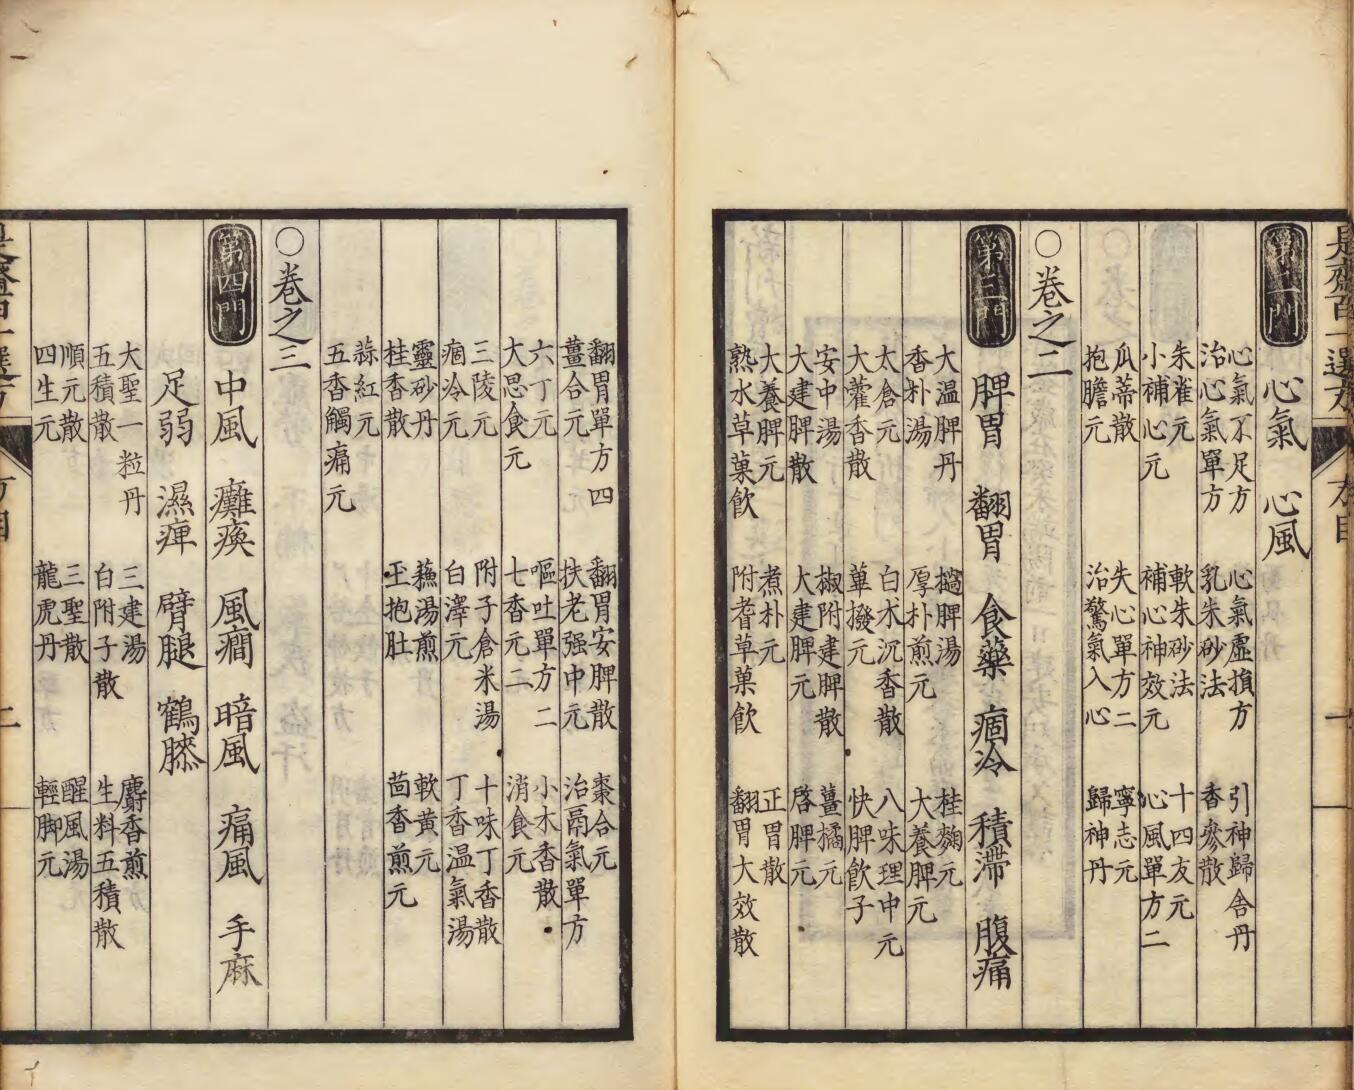 是齋百一選方 方目 一
第二門 心氣 心風
心氣不足方 心氣虛損方 引神歸舍丹
治心氣單方 乳朱砂法 香參散
朱雀元 軟朱砂法 十四友元
小補心元 補心神效元 心風單方二
瓜蒂散 失心單方二 寧志元
抱膽元 治驚氣入心 歸神丹
○卷之二
第三門 脾胃 翻胃 食藥 痼冷 積滯 腹痛
大温脾丹 撾脾湯 桂麴元
香朴湯 厚朴煎元 大養脾元
太倉元 白朮沉香散 八味理中元
大藿香散 蓽撥元 快脾飲子
安中湯 椒附建脾散 薑橘元
大建脾散 大建脾元 啓脾元
大養脾元 煮朴元 正胃散
熟水草菓飲 附香草菓飲 翻胃大效散
翻胃單方四 翻胃安脾散 棗合元
薑合元 扶老强中元 治鬲氣單方
六丁元 嘔吐單方二 小木香散
大思食元 七香元三 消食元
三陵元 附子倉米湯 十味丁香散
痼冷元 白澤元 丁香温氣湯
靈砂丹 蘓湯煎 軟黃元
桂香散 玉抱肚 茴香煎元
蒜紅元
五香觸痛元
○卷之三
第四門 中風 癱瘓 風癎 暗風 痛風 手麻
足弱 濕痺 臂腿 鶴膝
大聖一粒丹 三建湯 麝香煎
五積散 白附子散 生料五積散
順元散 三聖散 醒風湯
四生元 龍虎丹 輕脚元
是齋百一選方 方目 二